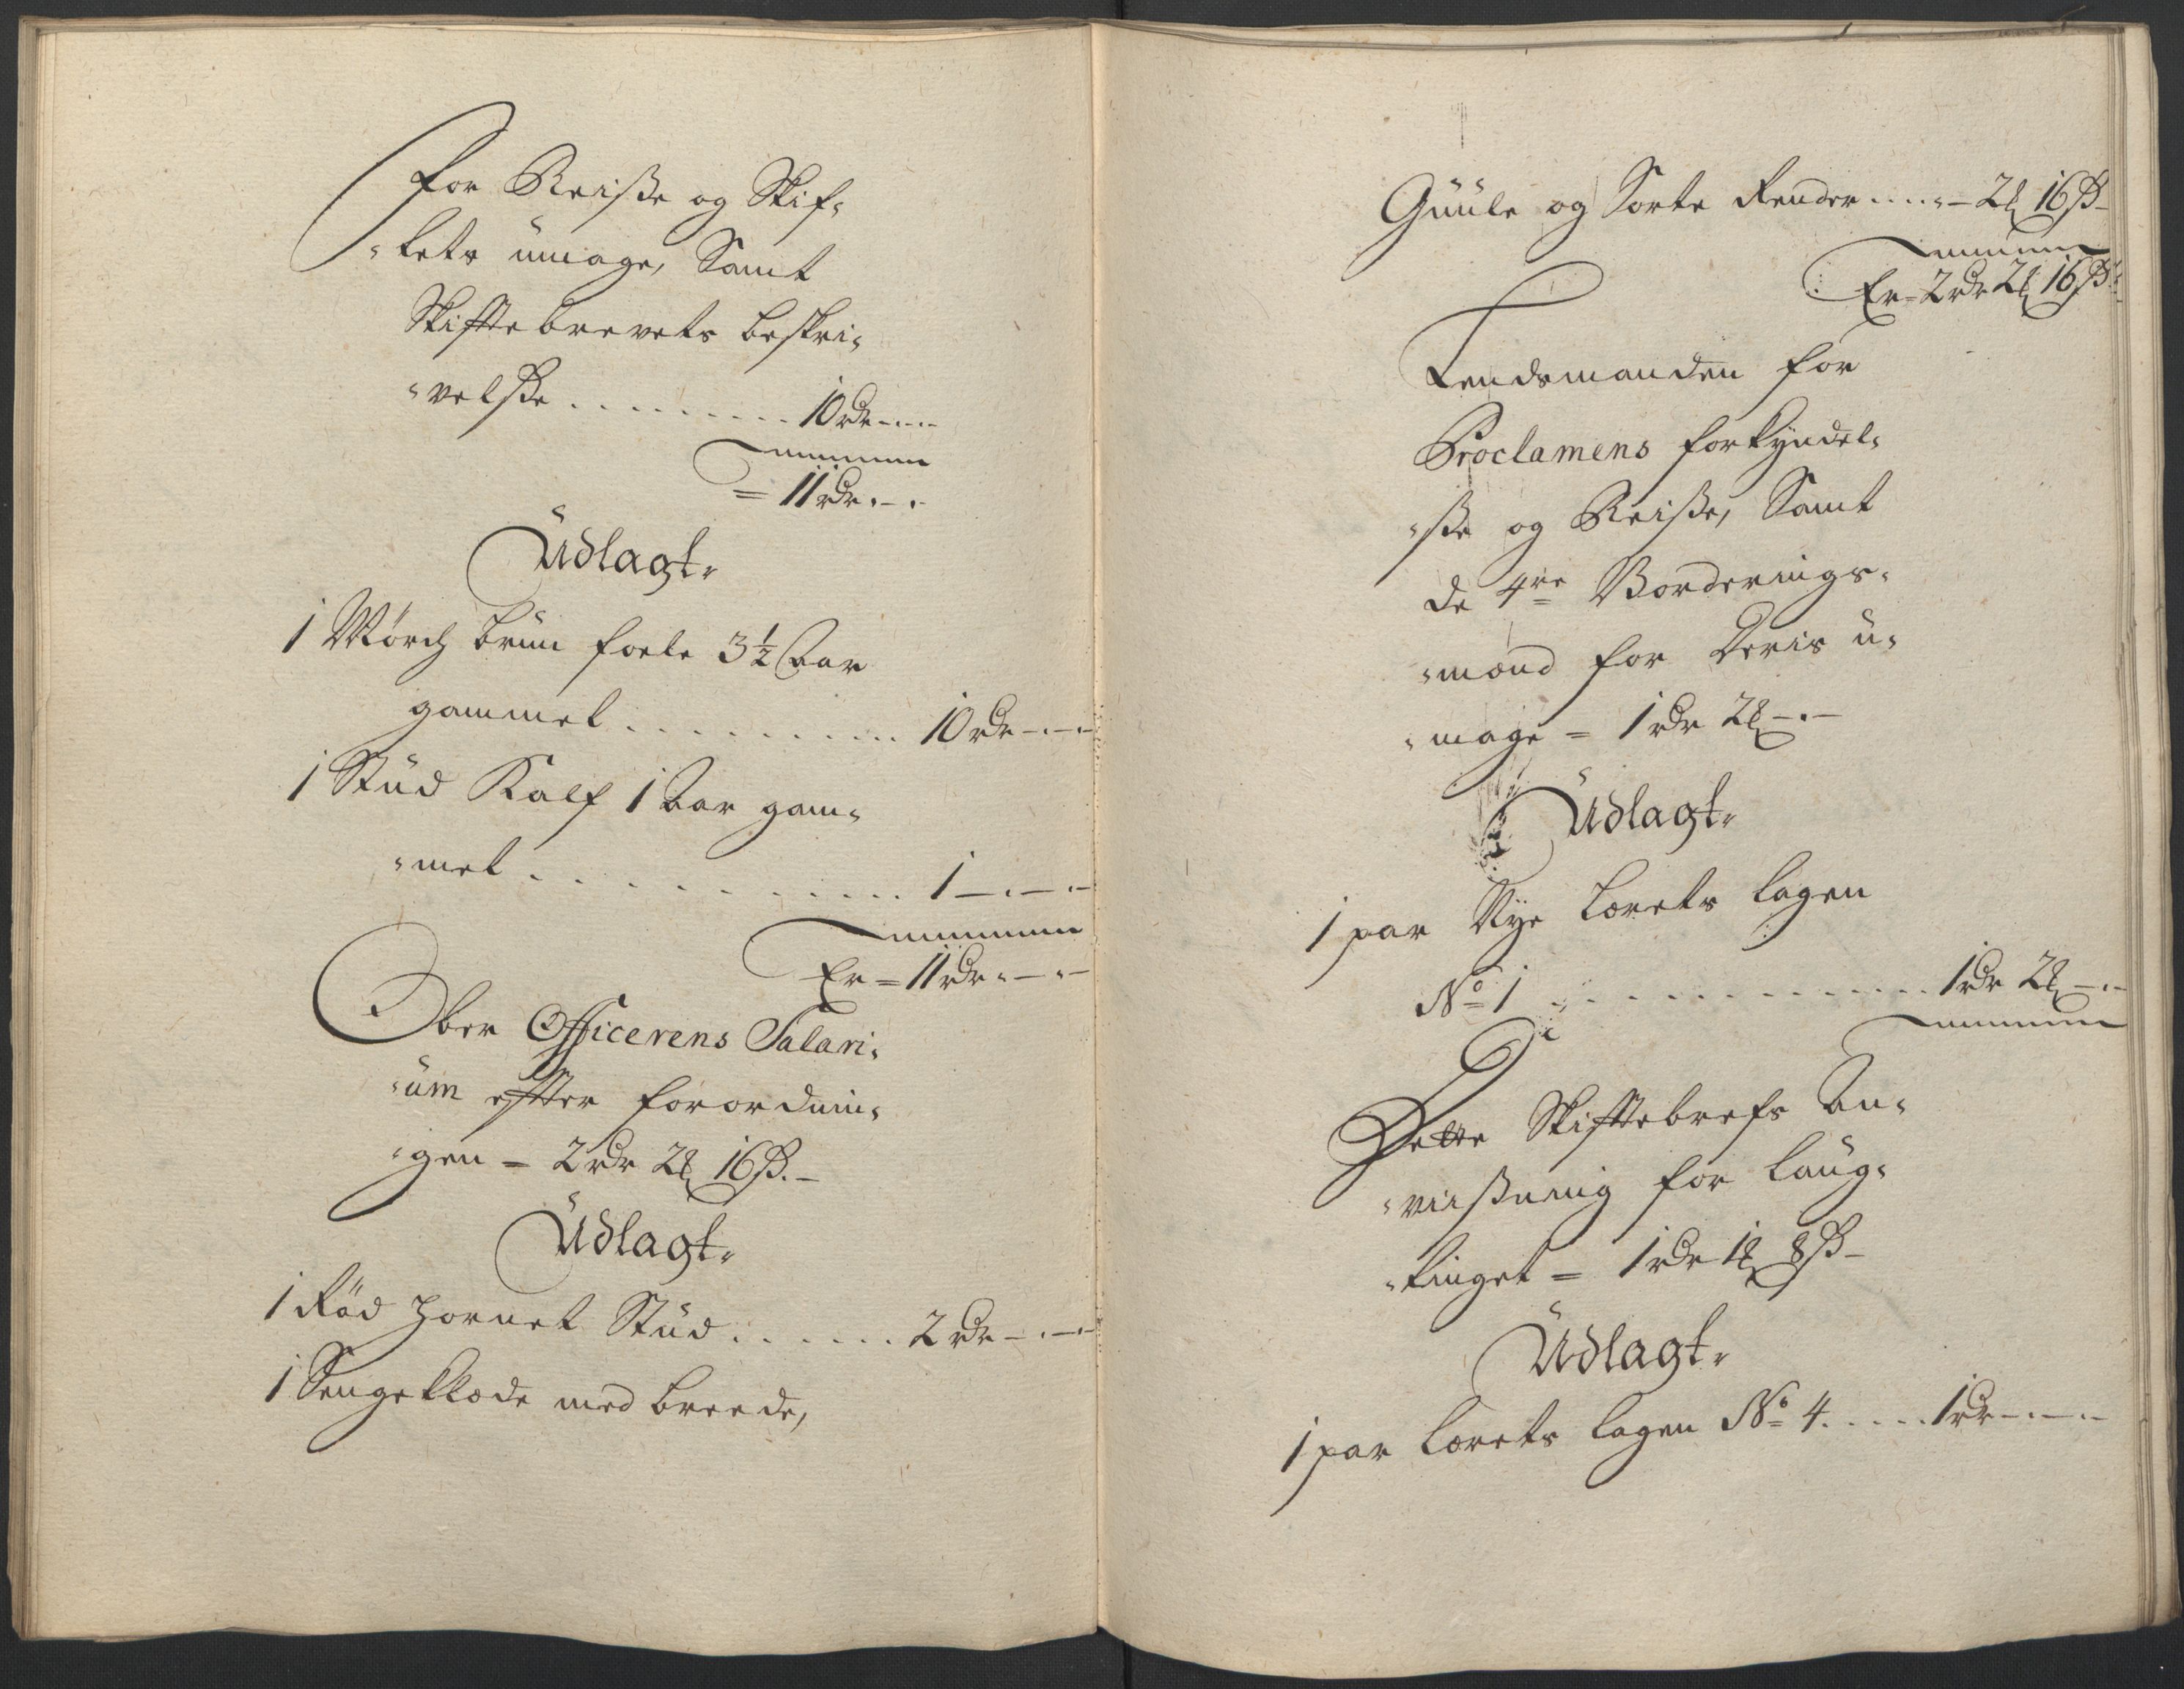 for Reiße og Skif-
-tets umage, Samt
Skifftebrevets beskri-
-velße . . . . . . . . . 10 rdr - . -
= 11 rdr . - .
Üdlagt.
1 Mørch brun foele 3½ Aar
gammel . . . . . . . . . 10 rdr - . -
1 Stüd Kalf 1 Aar gam-
-mel . . . . . . . . . 1 - . - . -
Er = 11 rdr . - . -
Ober Officerens Salari-
-üm effter forordnin-
-gen = 2 rdr 2 ℔ 16 ß. -
Üdlagt.
1 Rød hornet Stüd . . . . . . 2 rdr - . -
1 Sengeklæde med breede,
Guule og Sorte Render . . . . - 2 ℔ 16 ß -
Er = 2 rdr 2 ℔ 16 ß
Lendsmanden for
Proclamens forkyndel-
-ße og Reiße, Samt
de 4re Vorderings-
-mænd for Deris u-
-mage = 1 rdr 2 ℔ - . -
Üdlagt.
1 par Nye Lærets lagen
No 1 . . . . . . . . . . . 1 rdr 2 ℔ - . -
Dette Skifftebrefs An-
-viißning for laug-
-tinget = 1 rdr 1 ℔ 8 ß -
Üdlagt.
1 par Lærets lagen No 4 . . . . . 1 rdr - . - . -